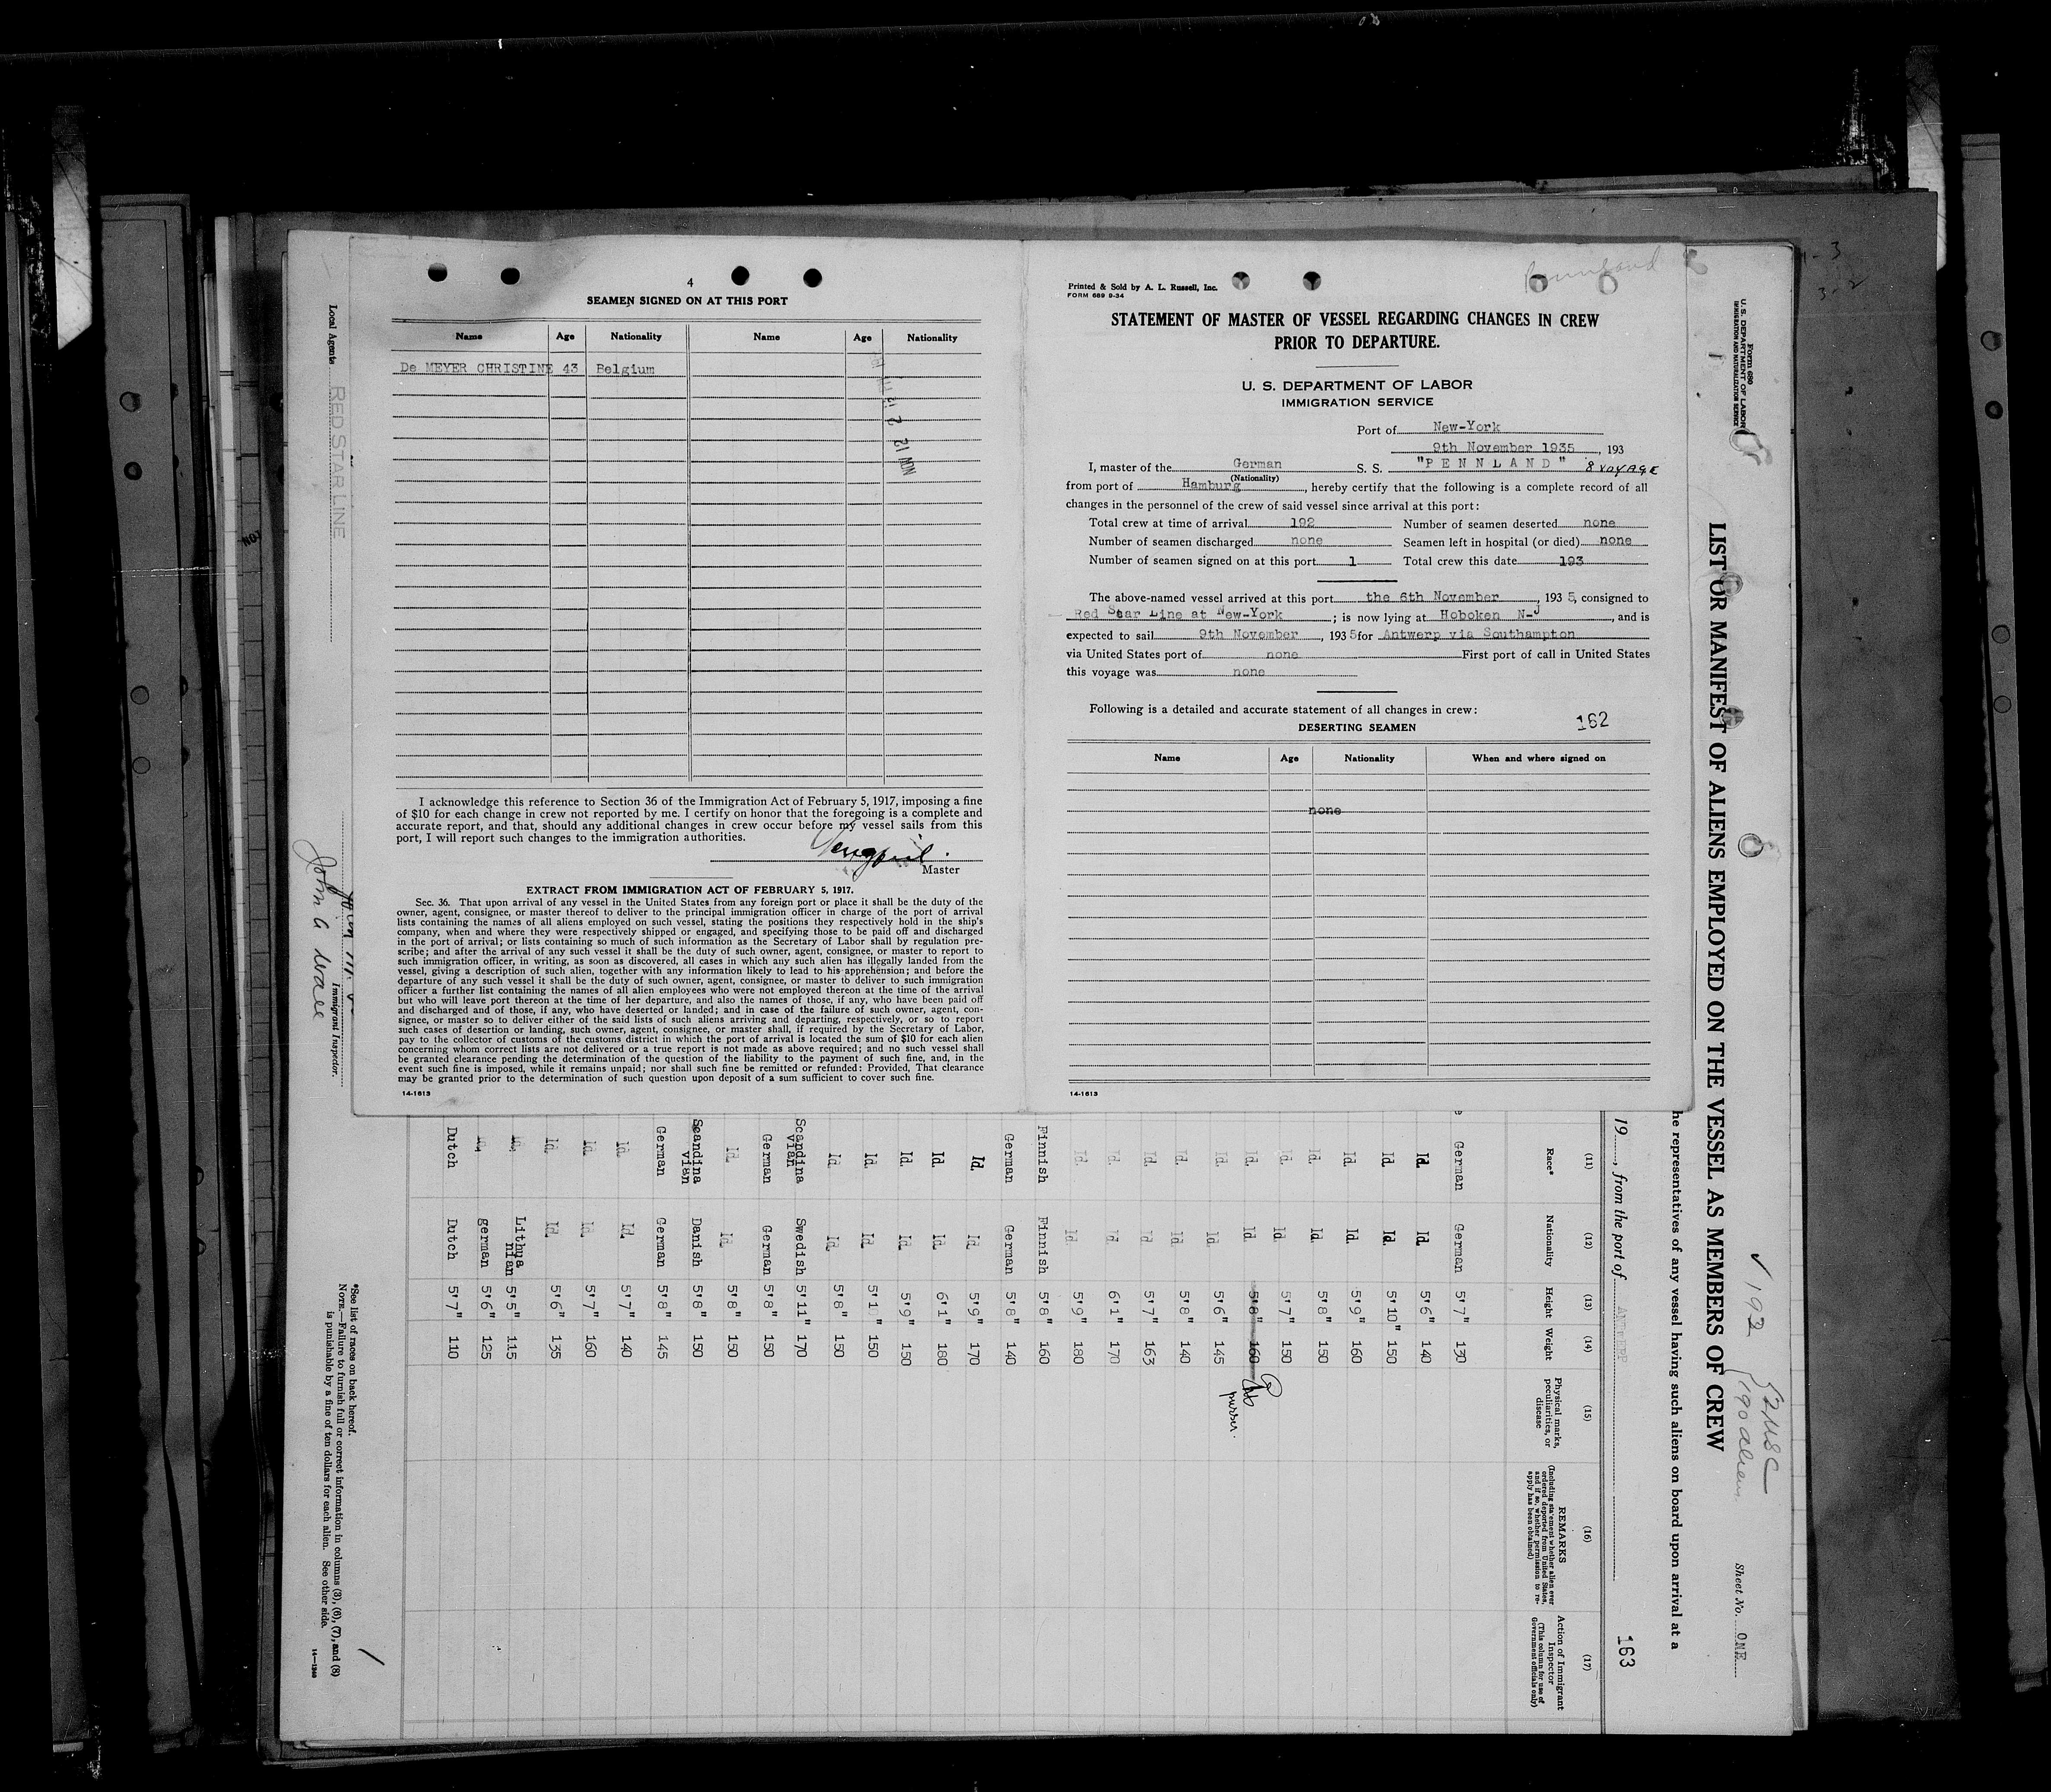 4
SEAMEN SIGNED ON AT THIS PORT
Name Age Nationality Name Age Nationality
De MEYER CHRISTINE 43 Belgium
I acknowledge this reference to Section 36 of the Immigration Act of February 5, 1917, imposing a fine
of $10 for each change in crew not reported by me. I certify on honor that the foregoing is a complete and
accurate report, and that, should any additional changes in crew occur before my vessel sails from this
port, I will report such changes to the immigration authorities.
Master
EXTRACT FROM IMMIGRATION ACT OF FEBRUARY 5, 1917.
Sec. 36. That upon arrival of any vessel in the United States from any foreign port or place it shall be the duty of the
owner, agent, consignee, or master thereof to deliver to the principal immigration officer in charge of the port of arrival
lists containing the names of all aliens employed on such vessel, stating the positions they respectively hold in the ship's
company, when and where they were respectively shipped or engaged, and specifying those to be paid off and discharged
in the port of arrival; or lists containing so much of such information as the Secretary of Labor shall by regulation pre-
scribe; and after the arrival of any such vessel it shall be the duty of such owner, agent, consignee, or master to report to
such immigration officer, in writing, as soon as discovered, all cases in which any such alien has illegally landed from the
vessel, giving a description of such alien, together with any information likely to lead to his apprehension; and before the
departure of any such vessel it shall be the duty of such owner, agent, consignee, or master to deliver to such immigration
officer a further list containing the names of all alien employees who were not employed thereon at the time of the arrival
but who will leave port thereon at the time of her departure, and also the names of those, if any, who have been paid off
and discharged and of those, if any, who have deserted or landed; and in case of the failure of such owner, agent, con-
signee, or master so to deliver either of the said lists of such aliens arriving and departing, respectively, or so to report
such cases of desertion or landing, such owner, agent, consignee, or master shall, if required by the Secretary of Labor,
pay to the collector of customs of the customs district in which the port of arrival is located the sum of $10 for each alien
concerning whom correct lists are not delivered or a true report is not made as above required; and no such vessel shall
be granted clearance pending the determination of the question of the liability to the payment of such fine, and, in the
event such fine is imposed, while it remains unpaid; nor shall such fine be remitted or refunded: Provided, That clearance
may be granted prior to the determination of such question upon deposit of a sum sufficient to cover such fine.
14-1613
Pennland
Printed & Sold by A. L. Russell, Inc.
FORM 689 9-34
STATEMENT OF MASTER OF VESSEL REGARDING CHANGES IN CREW
PRIOR TO DEPARTURE.
U. S. DEPARTMENT OF LABOR
IMMIGRATION SERVICE
Port of New-York
9th November 1935, 193
I, master of the German S. S. "PENNLAND" 8 VOYAGE
(Nationality)
from port of Hamburg, hereby certify that the following is a complete record of all
changes in the personnel of the crew of said vessel since arrival at this port:
Total crew at time of arrival 192 Number of seamen deserted none
Number of seamen discharged none Seamen left in hospital (or died) none
Number of seamen signed on at this port 1 Total crew this date 193
The above-named vessel arrived at this port the 6th November, 193 5, consigned to
Red Star Line at New-York; is now lying at Hoboken N-J, and is
expected to sail 9th November, 193 5 for Antwerp via Southampton
via United States port of none First port of call in United States
this voyage was none
Following is a detailed and accurate statement of all changes in crew:
DESERTING SEAMEN 162
Name Age Nationality When and where signed on
none
14-1613
Form 680
U. S. DEPARTMENT OF LABOR
IMMIGRATION AND NATURALIZATION SERVICE
✓ 192 { 2 USC
190 aliens
Sheet No. ONE
LIST OR MANIFEST OF ALIENS EMPLOYED ON THE VESSEL AS MEMBERS OF CREW
he representatives of any vessel having such aliens on board upon arrival at a
19, from the port of ANTWERP 163
(11) (12) (13) (14) (15) (16) (17)
Race* Nationality Height Weight Physical marks, peculiarities, or disease REMARKS (Including statement whether alien ever ordered deported from United States, and if so, whether permission to reapply has been obtained) Action of Immigrant Inspector (This column for use of Government officials only)
German German 5'7" 130
Id. Id. 5'6" 140
Id. Id. 5'10" 150
Id. Id. 5'9" 160
Id. Id. 5'8" 150
Id. Id. 5'7" 150
Id. Id. 5'8" 160
purser.
Id. Id. 5'6" 145
Id. Id. 5'8" 140
Id. Id. 5'7" 163
Id. Id. 6'1" 170
Id. Id. 5'9" 180
Finnish Finnish 5'8" 160
German German 5'8" 140
Id. Id. 5'9" 170
Id. Id. 6'1" 180
Id. Id. 5'9" 150
Id. Id. 5'1" 150
Id. Id. 5'8" 150
Scandinavian Swedish 5'11" 170
German German 5'8" 150
Id. Id. 5'8" 150
Scandinavian Danish 5'8" 150
German German 5'8" 145
Id. Id. 5'7" 140
Id. Id. 5'7" 160
Id. Id. 5'6" 135
id. Lithuanian 5'5" 115
id. german 5'6" 125
Dutch Dutch 5'7" 110
*See list of races on back hereof.
NOTE.—Failure to furnish full or correct information in columns (3), (6), (7), and (8)
is punishable by a fine of ten dollars for each alien. See other side.
14-1240
Local Agents RED STAR LINE
Immigrant Inspector.